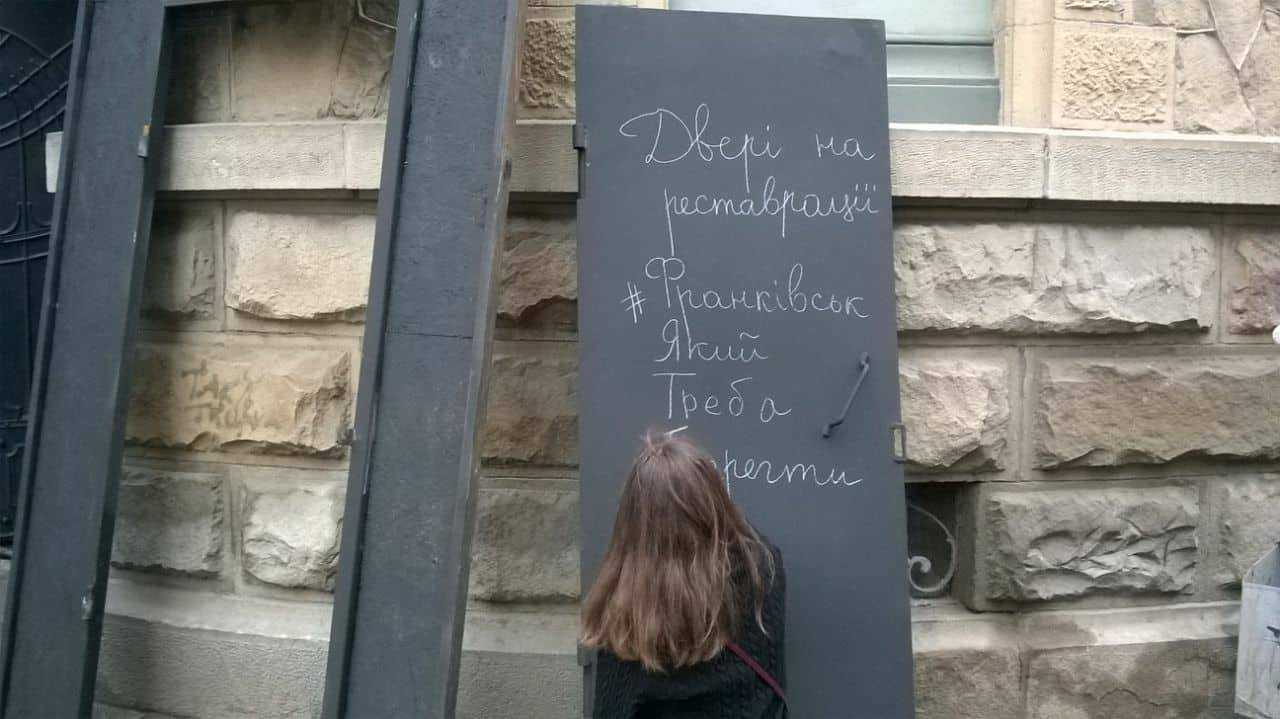 Двері на
реставрації
#Франківськ
Який
Треба